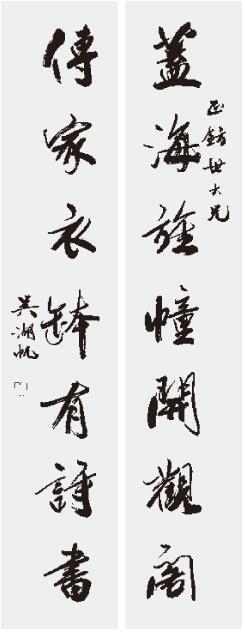 蓋海旌幢開觀閣
正世大兄
傳家衣缽有詩書
吳湖帆